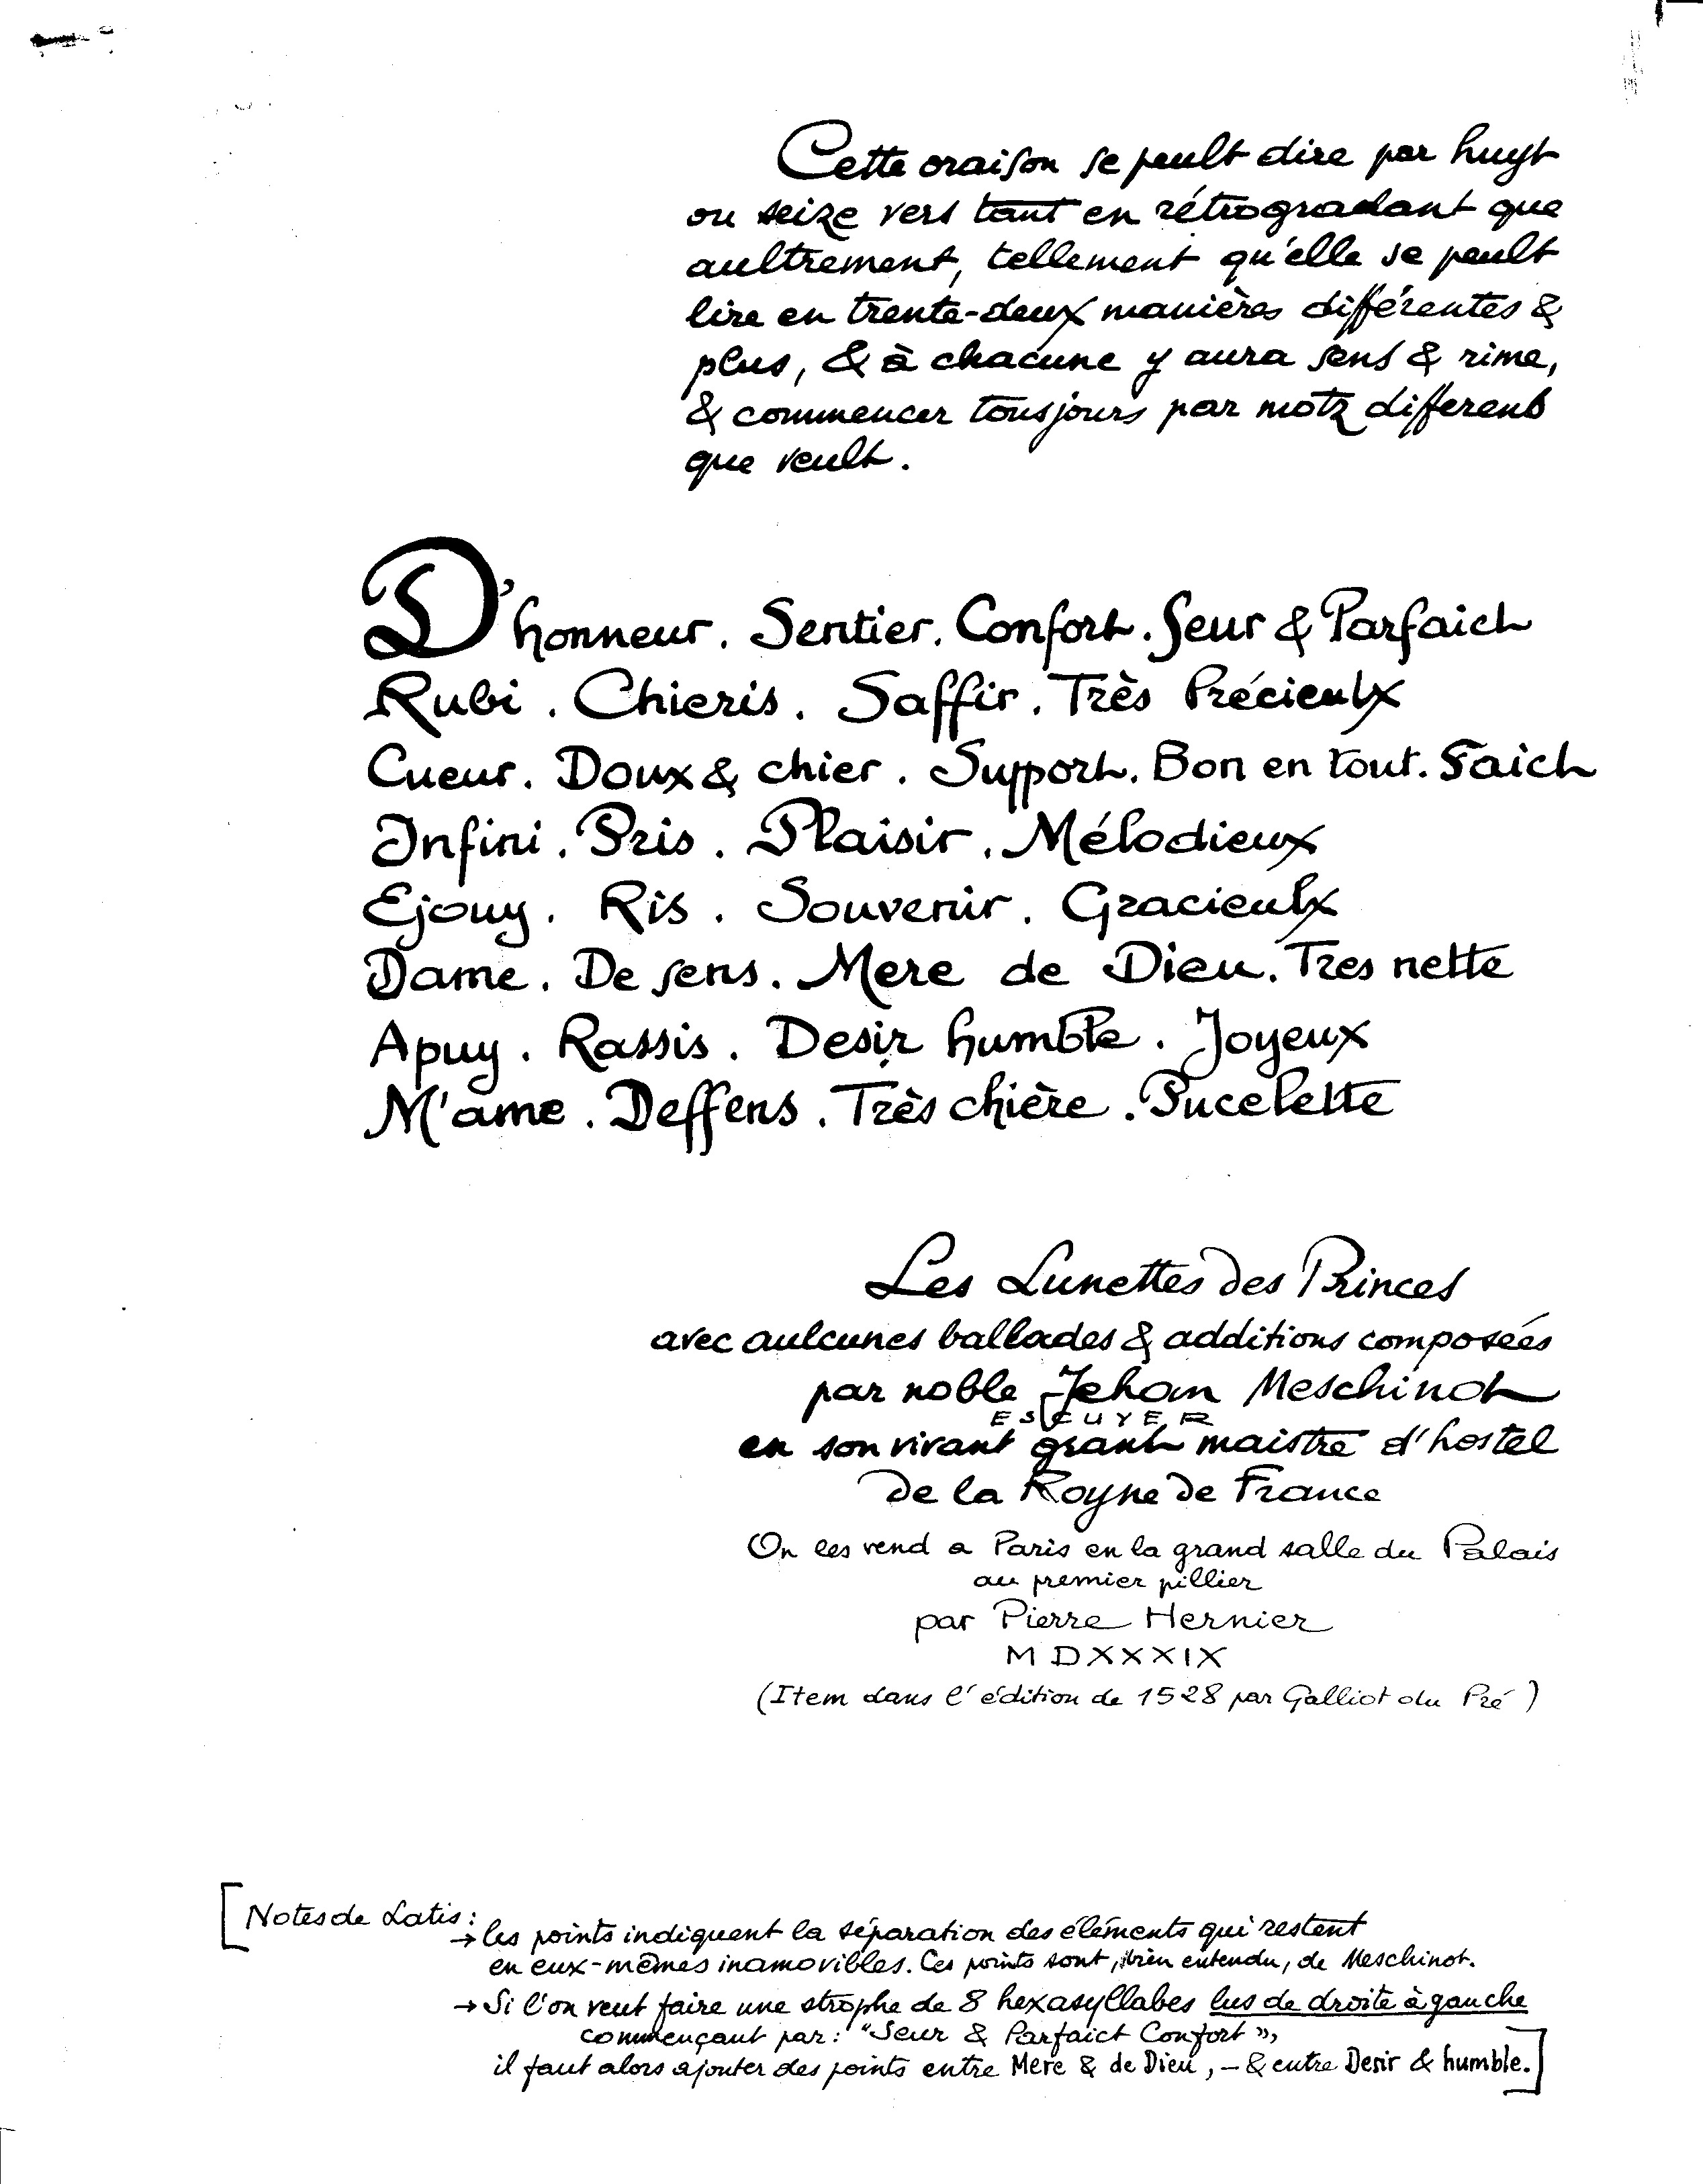 Cette oraison se peult dire par huyt
ou seize vers tant en rétrogradant que
aultrement, tellement qu'elle se peult
lire en trente-deux manières différentes &
plus, & à chacune y aura sens & rime,
& commencer tousjours par motz different
que veult.
D'honneur. Sentier. Confort. Seur & Parfaict
Rubi. Chieris. Saffir. Très Précieulx
Cueur. Doux & chier. Support. Bon en tout. Faict
Infini. Pris. Plaisir. Mélodieux
Ejouy. Ris. Souvenir. Gracieulx
Dame. De sens. Mere de Dieu. Tres nette
Apuy. Rassis. Desir humble. Joyeux
M'ame. Deffens. Très chière. Pucelette
Les Lunettes des Princes
avec aulcunes ballades & additions composées
par noble Jehan Meschinot
ESCUYER
en son vivant grant maistre d'hostel
de la Royne de France
On les vend a Paris en la grand salle du Palais
au premier pillier
par Pierre Hernier
MDXXXIX
(Item dans l'édition de 1528 par Galliot du Pré)
[Notes de Latis:
→ les points indiquent la séparation des éléments qui restent
en eux-mêmes inamovibles. Ces points sont, bien entendu, de Meschinot.
→ Si l'on veut faire une strophe de 8 hexasyllabes lus de droite à gauche
commençant par: "Seur & Parfaict Confort",
il faut alors ajouter des points entre Mere & de Dieu, – & entre Desir & humble.]